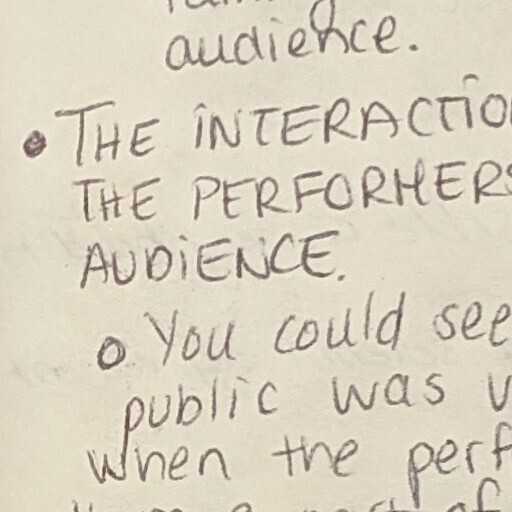 audience.
• THE INTERACTIO
THE PERFORMERS
AUDIENCE.
o You could see
public was
when the perf